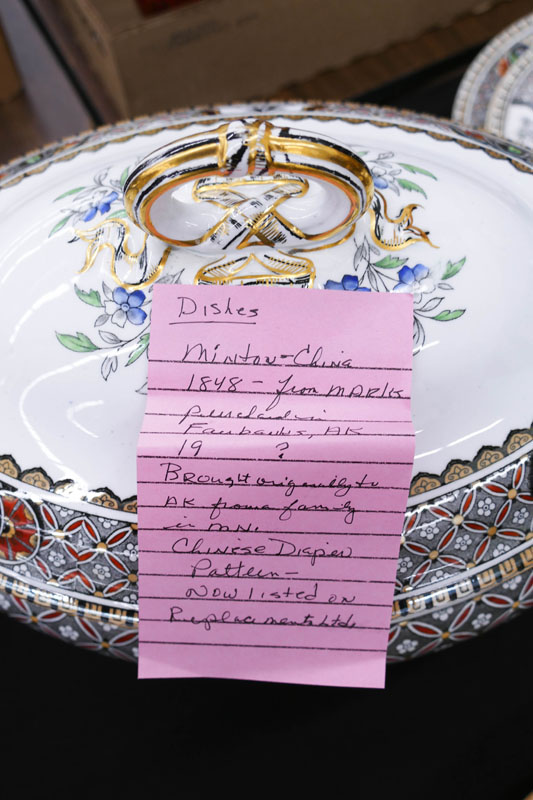 Dishes
Minton-China
1848 - from MARKS
purchased in
Fairbanks, AK
19 ?
Brought originally to
AK from a family
in MN.
Chinese Diaper
Pattern-
Now listed on
Replacements Ltd.